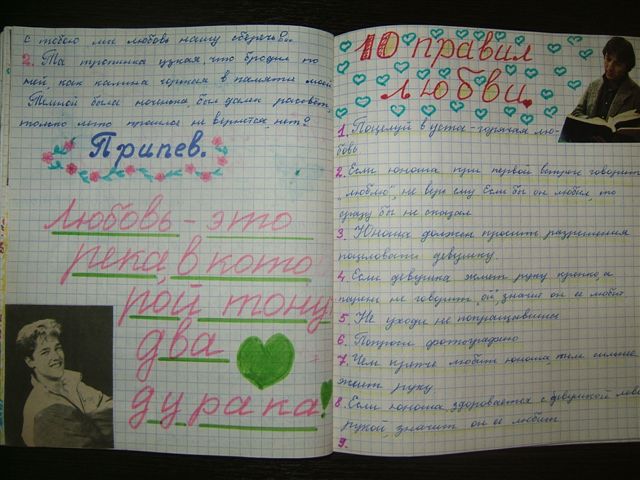 с тобою мы любовь нашу сбережём.
2. Та тропинка узкая, что бродил по
ней, как калина горькая в памяти моей
Тёмной была ноченька, был далек рассвет,
только лето прошлое не вернётся, нет?
Припев.
Любовь - это
река, в кото
рой тонут
два
дурака!
10 правил
любви.
1. Поцелуй в уста - горячая лю-
бовь
2. Если юноша при первой встрече говорит
"люблю", не верь ему. Если бы он любил, то
сразу бы не сказал
3. Юноша должен просить разрешения
поцеловать девушку.
4. Если девушка жмет руку крепко, а
парень не говорит "ой", значит он ее любит
5. Не уходи не попращавшись
6. Попроси фотографию
7. Чем крепче любит юноша, тем сильнее
жмет руку
8. Если юноша здоровается с девушкой лево
рукой, значит он ее любит
9.